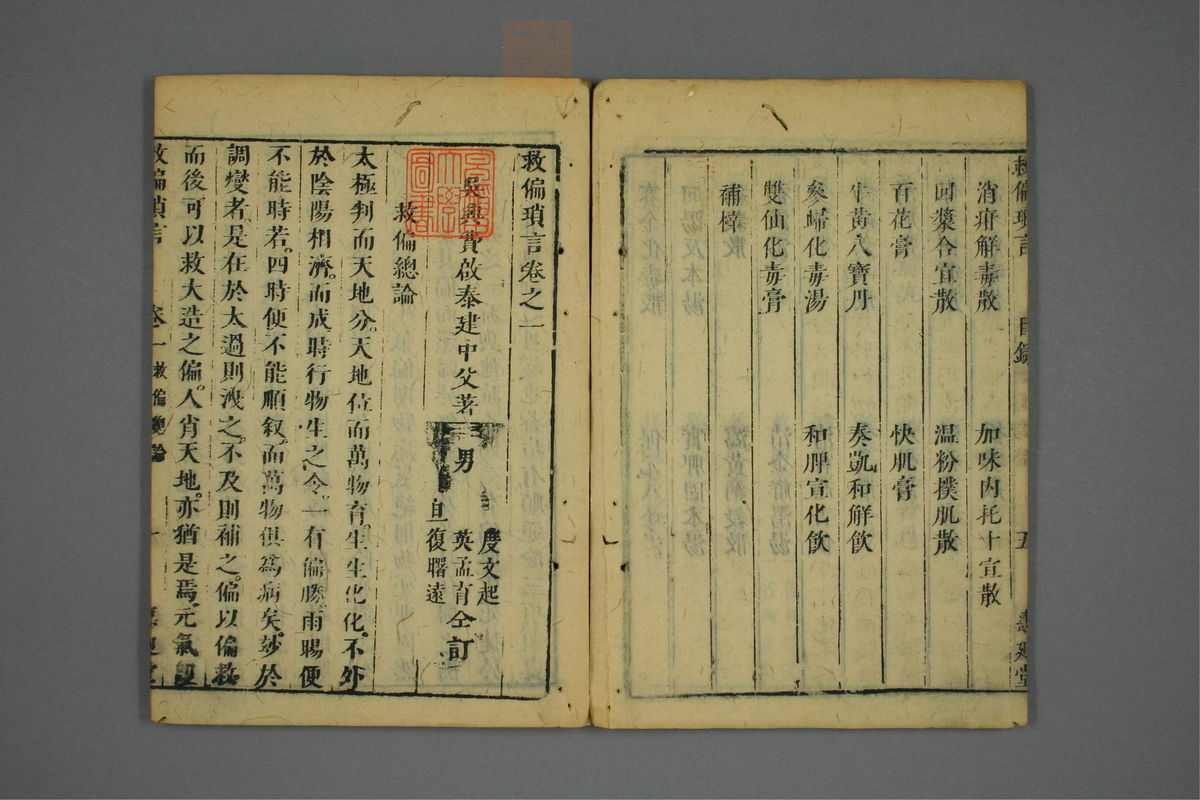 救偏瑣言 目錄 五 惠廸堂
消疳解毒散 加味內托十宣散
囘漿合宜散 温粉撲肌散
百花膏 快肌膏
牛黃八寶丹 奏凱和解飲
參歸化毒湯 和脾宣化飲
雙仙化毒膏
補榟
救偏瑣言卷之一
吳興費啟泰建中父著 男
度文起
英孟育 仝訂
旦復曙遠
救偏總論
太極判而天地分。天地位而萬物育。生生化化。不外
於陰陽相濟。而成時行物生之令。一有偏勝。雨暘便
不能時若。四時便不能順叙。而萬物俱爲病矣。玅於
調燮者。是在於太過則洩之。不及則補之。偏以偏救
而後可以救大造之偏。人肖天地。亦猶是焉。元氣
救偏瑣言 卷一 救偏總論 一